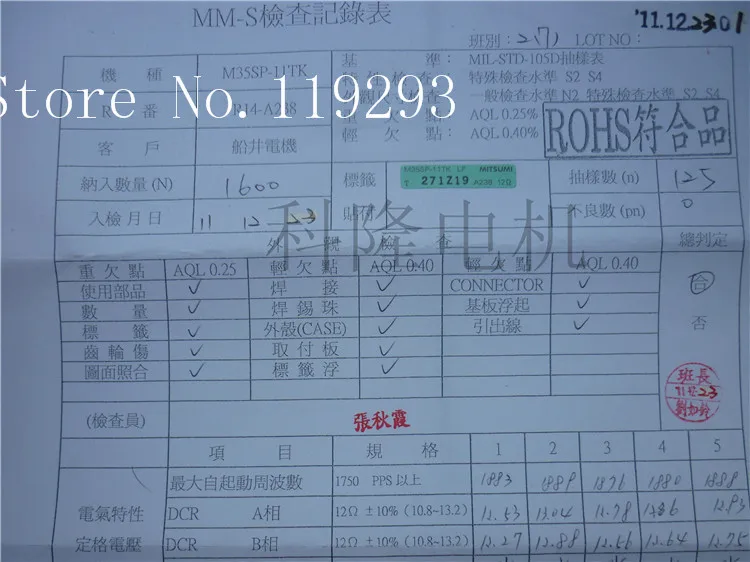 MM-S檢查記錄表
'11.12.23 01
班別: 2(7) LOT NO:
機種 M35SP-11TK 基準: MIL-STD-105D抽樣表
特殊檢查水準 S2 S4
Store No.119293
番 R14-A238 一般檢查水準 N2 特殊檢查水準 S2 S4
重欠點: AQL 0.25%
客戶 船井電機 輕欠點: AQL 0.40%
ROHS符合品
納入數量(N) 1600 標籤 M35SP-11TK LF MITSUMI 抽樣數(n) 125
T 271Z19 A238 12Ω
入檢月日 11 12 23 貼付 不良數(pn) 0
科隆电机
外觀檢查 總判定
重欠點 AQL 0.25 輕欠點 AQL 0.40 輕欠點 AQL 0.40
使用部品 ✓ 焊接 ✓ CONNECTOR ✓ 合
數量 ✓ 焊錫珠 ✓ 基板浮起 ✓
標籤 ✓ 外殼(CASE) ✓ 引出線 ✓ 否
齒輪傷 ✓ 取付板 ✓
圖面照合 ✓ 標籤浮 ✓
班長
11.12.23
(檢查員) 張秋霞
項目 規格 1 2 3 4 5
最大自起動周波數 1750 PPS 以上 1883 1889 1876 1880 1888
電氣特性 DCR A相 12Ω ±10% (10.8~13.2) 12.53 12.04 12.78 12.86 12.93
定格電壓 DCR B相 12Ω ±10% (10.8~13.2) 12.27 12.88 12.66 12.64 12.75